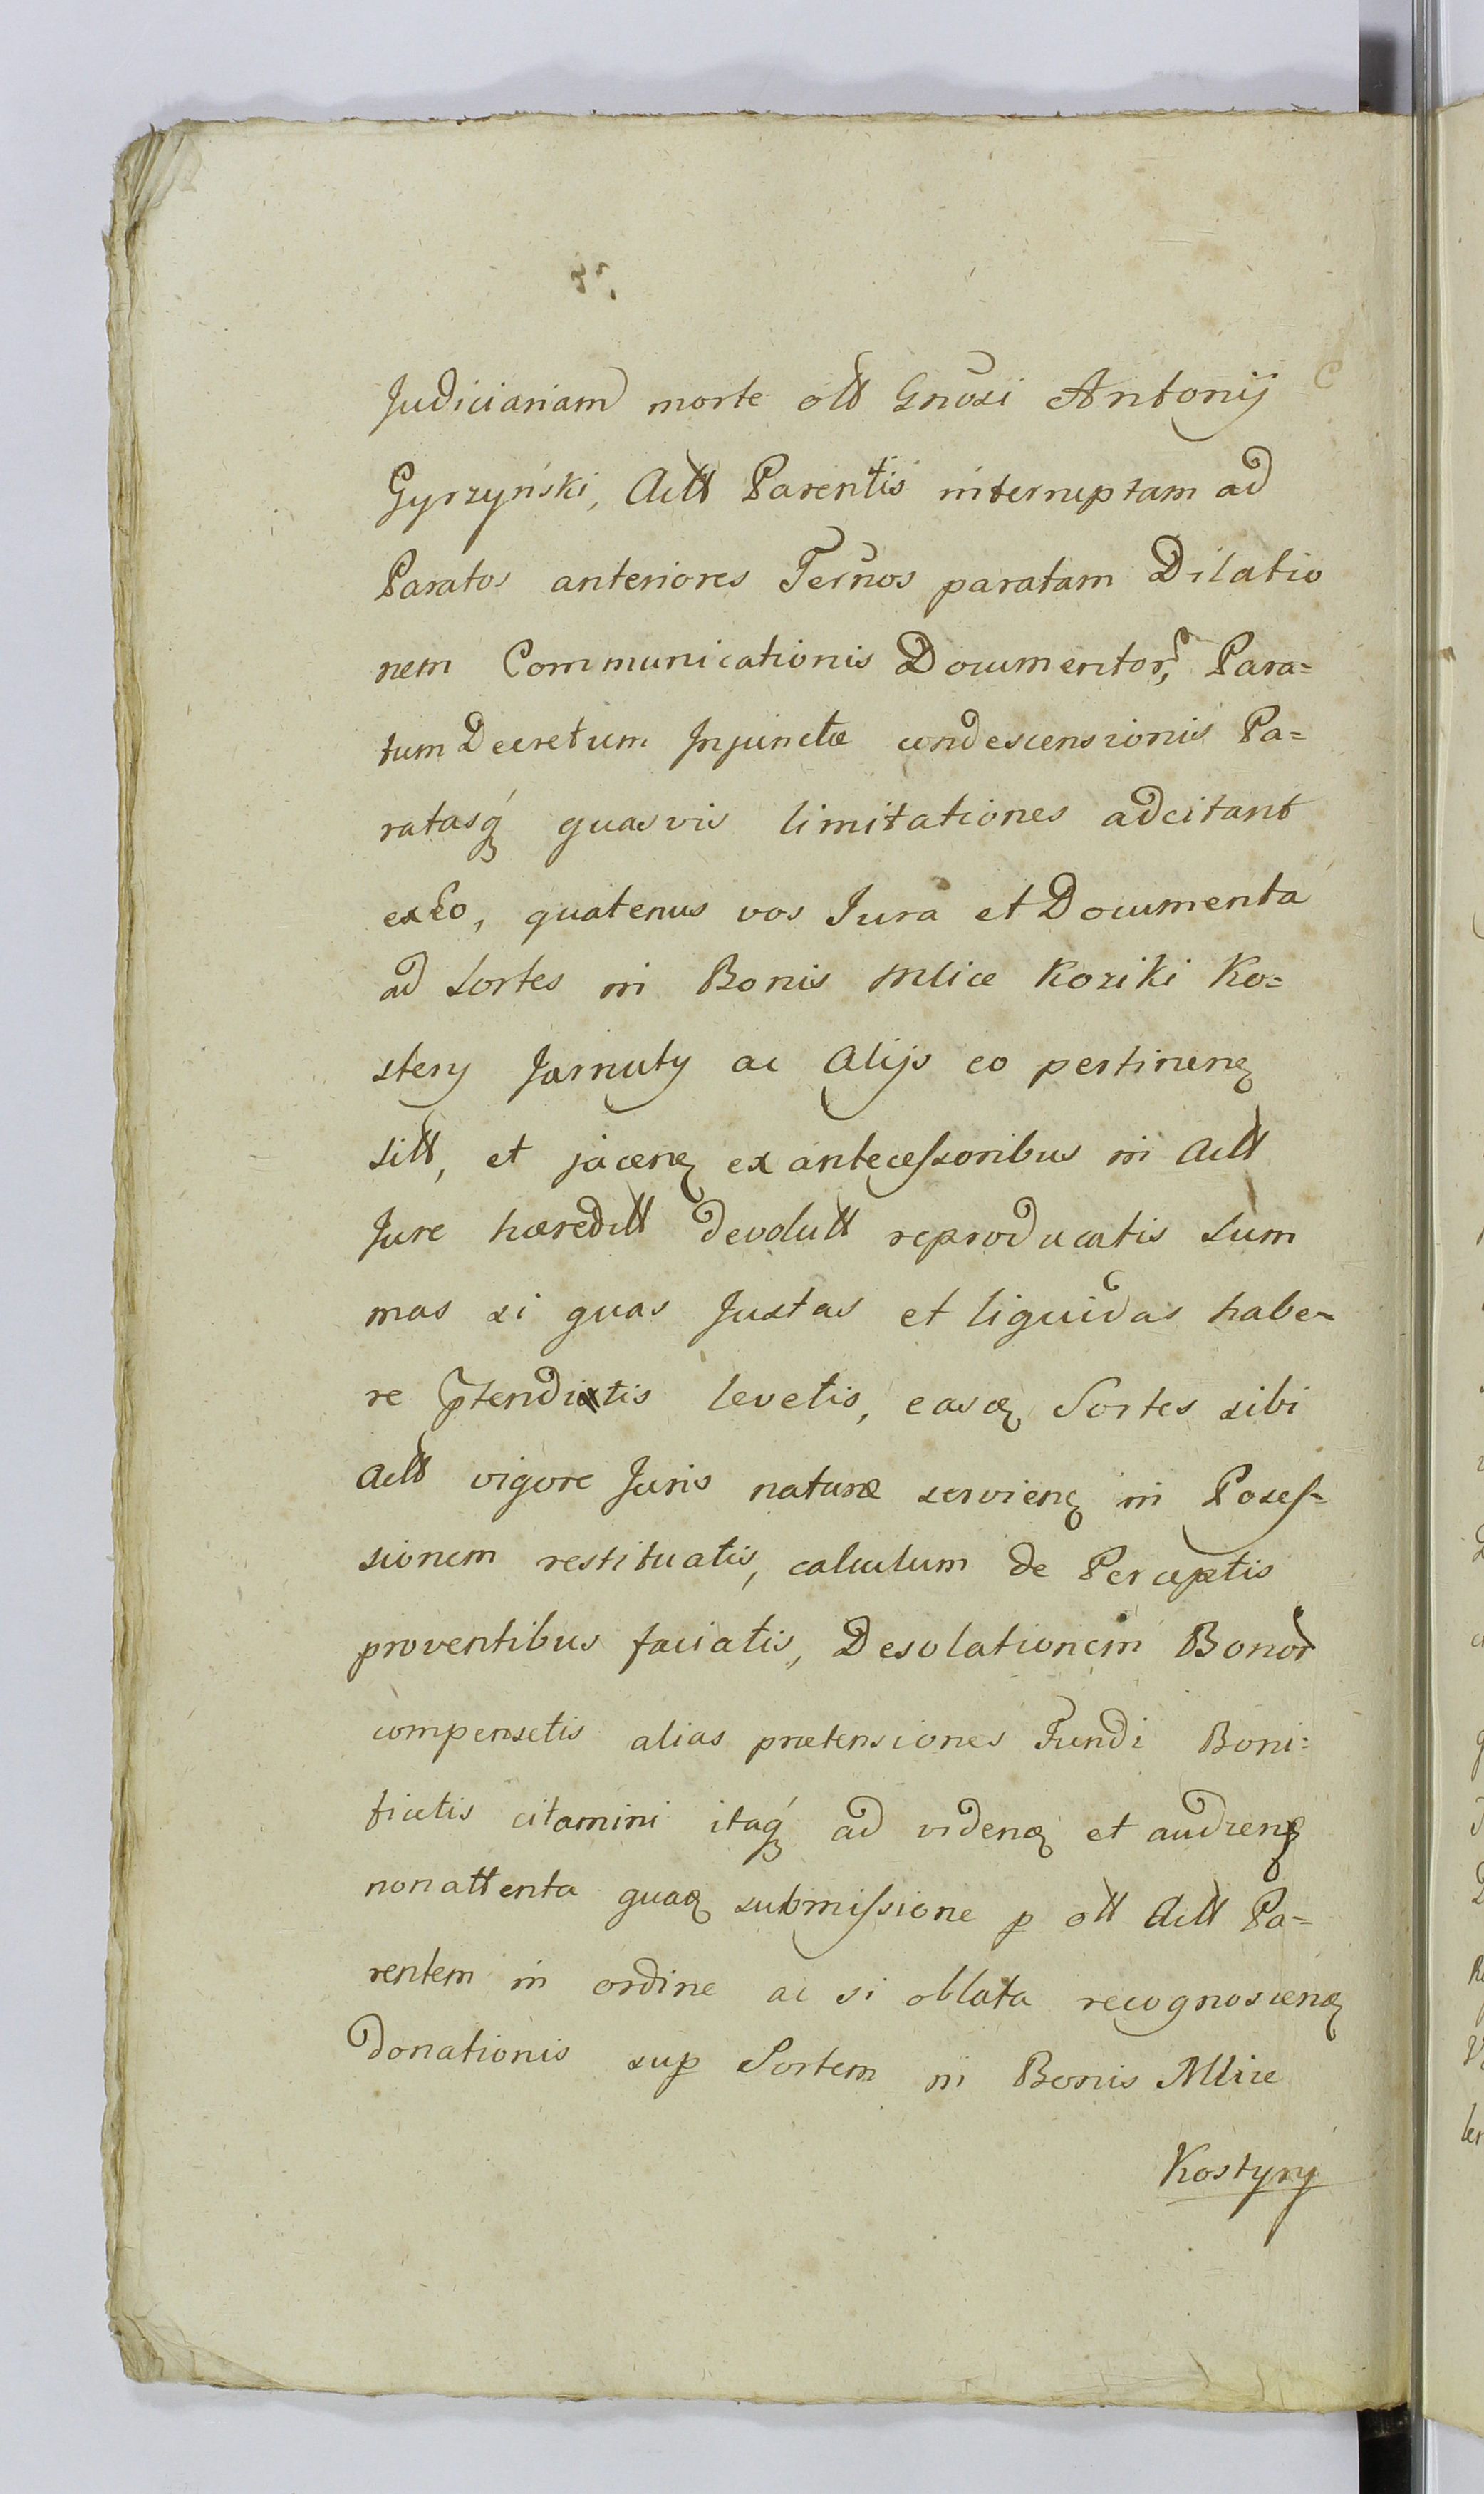 Judiciariam morte olt Gnosi Antonij
Gyrzyński, Actt Parentis interruptam ad
Paratos anteriores Ternos paratam Dilatio
nem Communicationis Documentor, Para=
tum Decretum Injunctæ condescensionis Pa=
ratasq quasvis limitationes adcitant
ex Eo, quatenus vos Jura et Documenta
ad Sortes in Bonis Mlice Koziki Ko=
stery Jarnuty ac Alijs eo pertinenq
sitt, et jacenq ex antecessoribus in Actt
Jure hæreditt devolutt reproducatis Sum
mas si quas Justas et liquidas habe=
re ptenditis levetis, easq Sortes sibi
Actt vigore Juris naturæ servienq in Poses=
sionem restituatis, calculum de Perceptis
proventibus faciatis, Desolationem Bonor
compensetis alias prætensiones Fundi Boni=
ficetis citamini itaq ad videnq et audienq
non attenta quaq submissione p olt Actt Pa=
rentem in ordine ac si oblata recognoscenq
donationis sup Sortem in Bonis Mlice
Kostyry